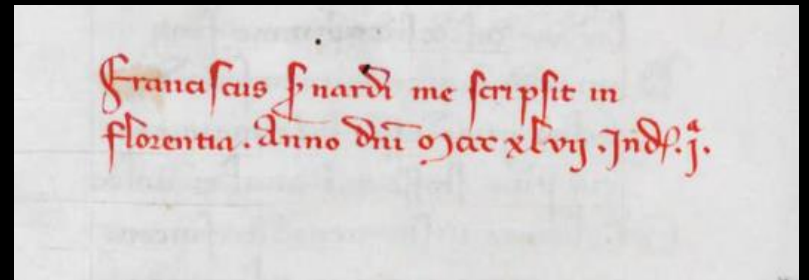 Franciscus s̵ nardi me scripsit in
florentia . Anno dñi Mccc xlvij . Indꝭ. jª.